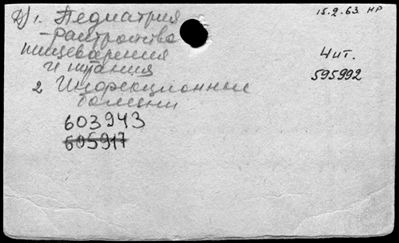 1. Педиатрия
15.2.63 НР
- расстройство
пищеварения
и питания
4 ит.
595992
2. Инфекционные
болезни
603943
605917